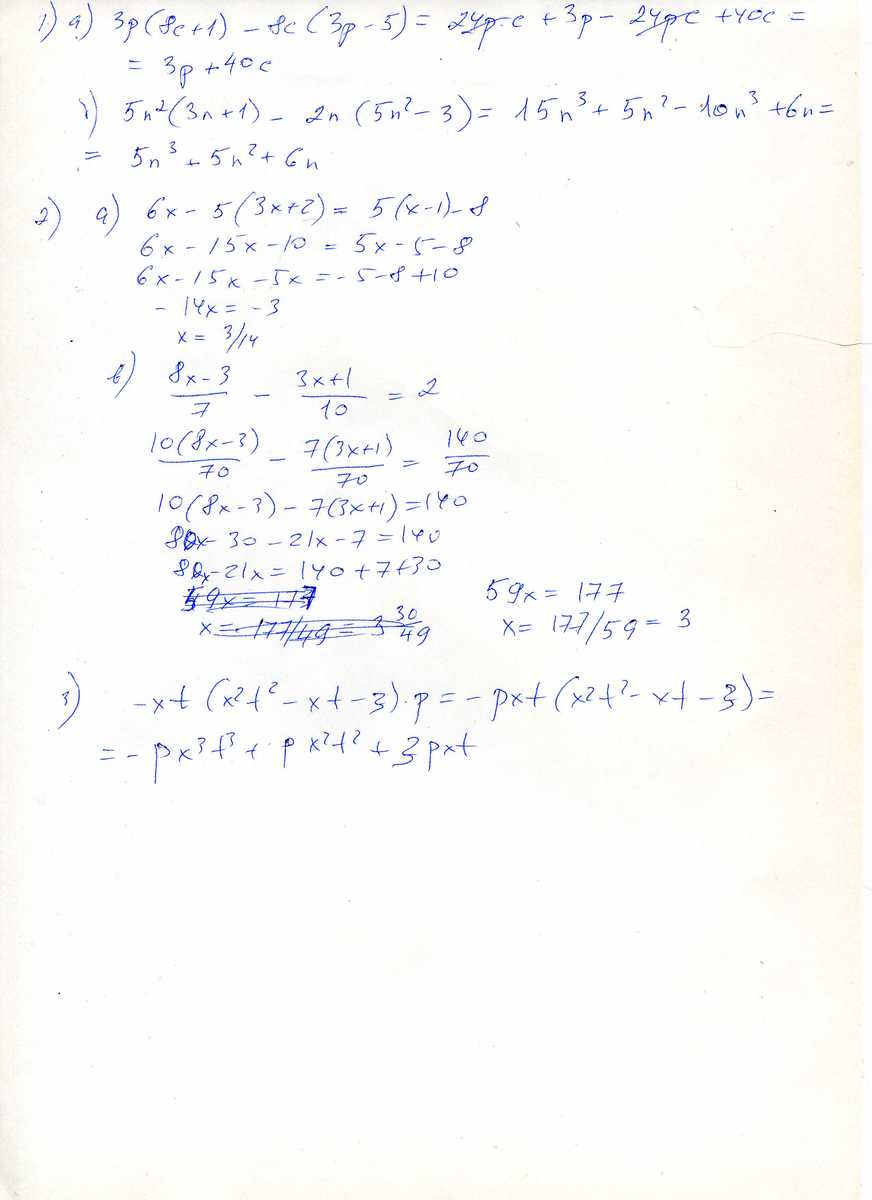 1) a) 3p(8c+1) - 8c(3p-5) = 24pc + 3p - 24pc + 40c =
= 3p + 40c
б) 5n²(3n+1) - 2n(5n²-3) = 15n³ + 5n² - 10n³ + 6n =
= 5n³ + 5n² + 6n
2) a) 6x - 5(3x+2) = 5(x-1) - 8
6x - 15x - 10 = 5x - 5 - 8
6x - 15x - 5x = -5 - 8 + 10
- 14x = -3
x = 3/14
в) (8x-3)/7 - (3x+1)/10 = 2
10(8x-3)/70 - 7(3x+1)/70 = 140/70
10(8x-3) - 7(3x+1) = 140
80x - 30 - 21x - 7 = 140
80x - 21x = 140 + 7 + 30
59x = 177
x = 177/49 = 3 30/49
59x = 177
x = 177/59 = 3
3) -xt(x²t² - xt - 3)·p = -pxt(x²t² - xt - 3) =
= -px³t³ + px²t² + 3pxt